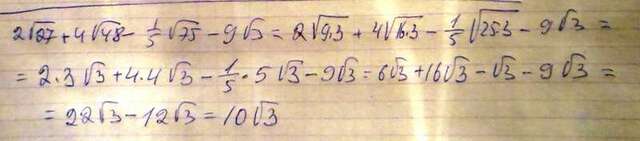 2√27+4√48-1/5√75-9√3=2√9.3+4√16.3-1/5√25.3-9√3=
=2·3√3+4·4√3-1/5·5√3-9√3=6√3+16√3-√3-9√3=
=22√3-12√3=10√3